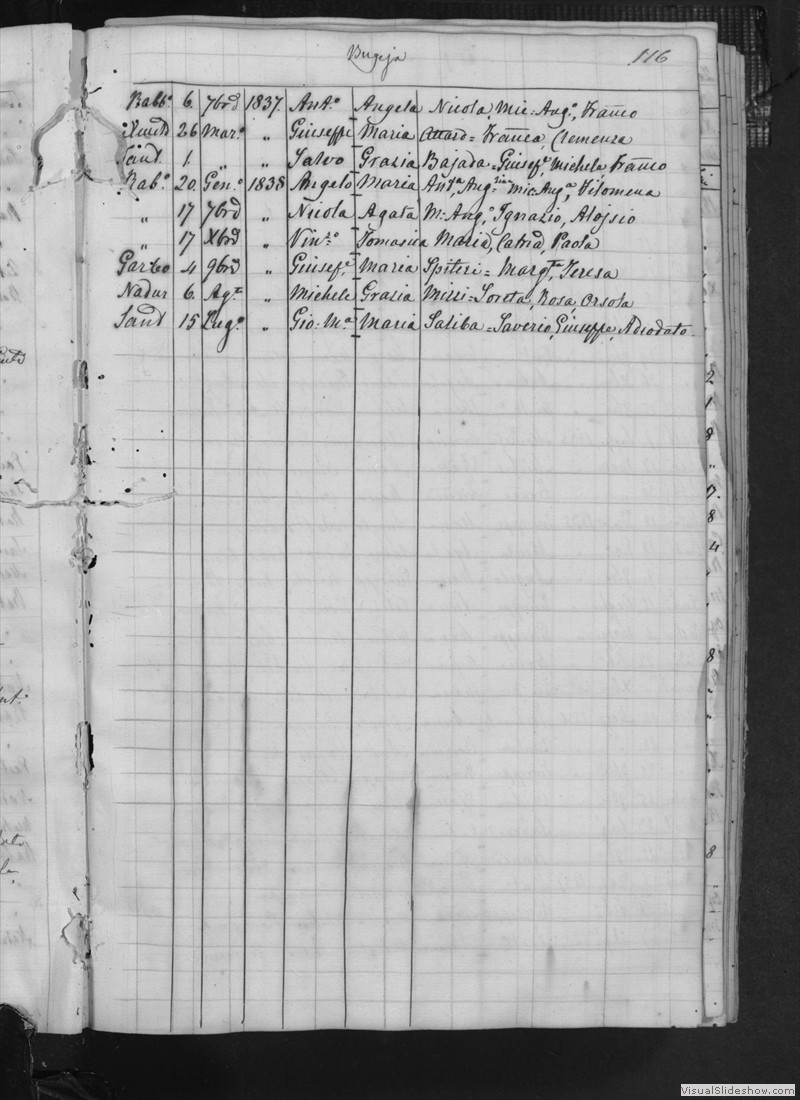 Bugeja 116
Rabb.o 6. 7brd 1837 Ant.o Angela Nicola, Mic-Ang.o, Franco
26 Mar.o „ Giuseppe Maria Attard= Franca, Clemenza
Sant. 1. „ „ Salvo Grazia Bajada=Giusep.e, Michele, Franco
Rab.o 20. Gen.o 1838 Angelo Maria Mic-Ang.a, Filomena
„ 17 7brd „ Nicola Agata M-Ang.o, Ignazio, Alojsio
„ 17 Xbrd „ Vin.zo Tomasica Maria, Catrid, Paola
Garbo 4 9brd „ Giusep.e Maria Spiteri= Marg.ta, Teresa
Nadur 6. Ag.to „ Michele Grazia Missi=Loreta, Rosa, Orsola
Sant 15 Lug.o „ Gio: M.a Maria Saliba=Saverio, Giuseppe, Adiodato
2
1
8
„
7.
8
4
8
8
VisualSlideshow.com